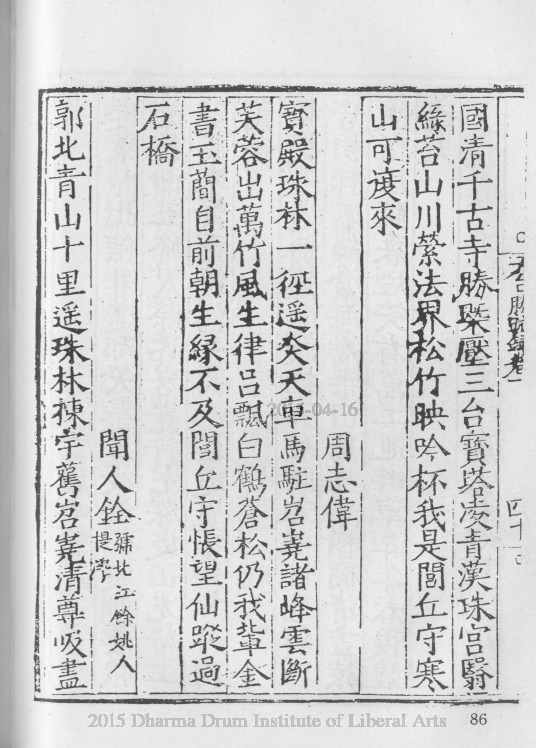 國清千古寺勝槩壓三台寶塔凌青漢珠宮翳
緑苔山川縈法界松竹映吟杯我是閭丘守寒
山可渡來
周志偉
寶殿珠林一徑遥炎天車馬駐岧嶤諸峰雲斷
芙蓉出萬竹風生律呂飄白鶴蒼松仍我軰金
書玉蕳自前朝生緣不及閭丘守悵望仙蹤過
石橋
聞人銓
北江餘姚人
提學
郭北青山十里遥珠林棟宇舊岧嶤清尊吸盡
2015-04-16
2015 Dharma Drum Institute of Liberal Arts
86